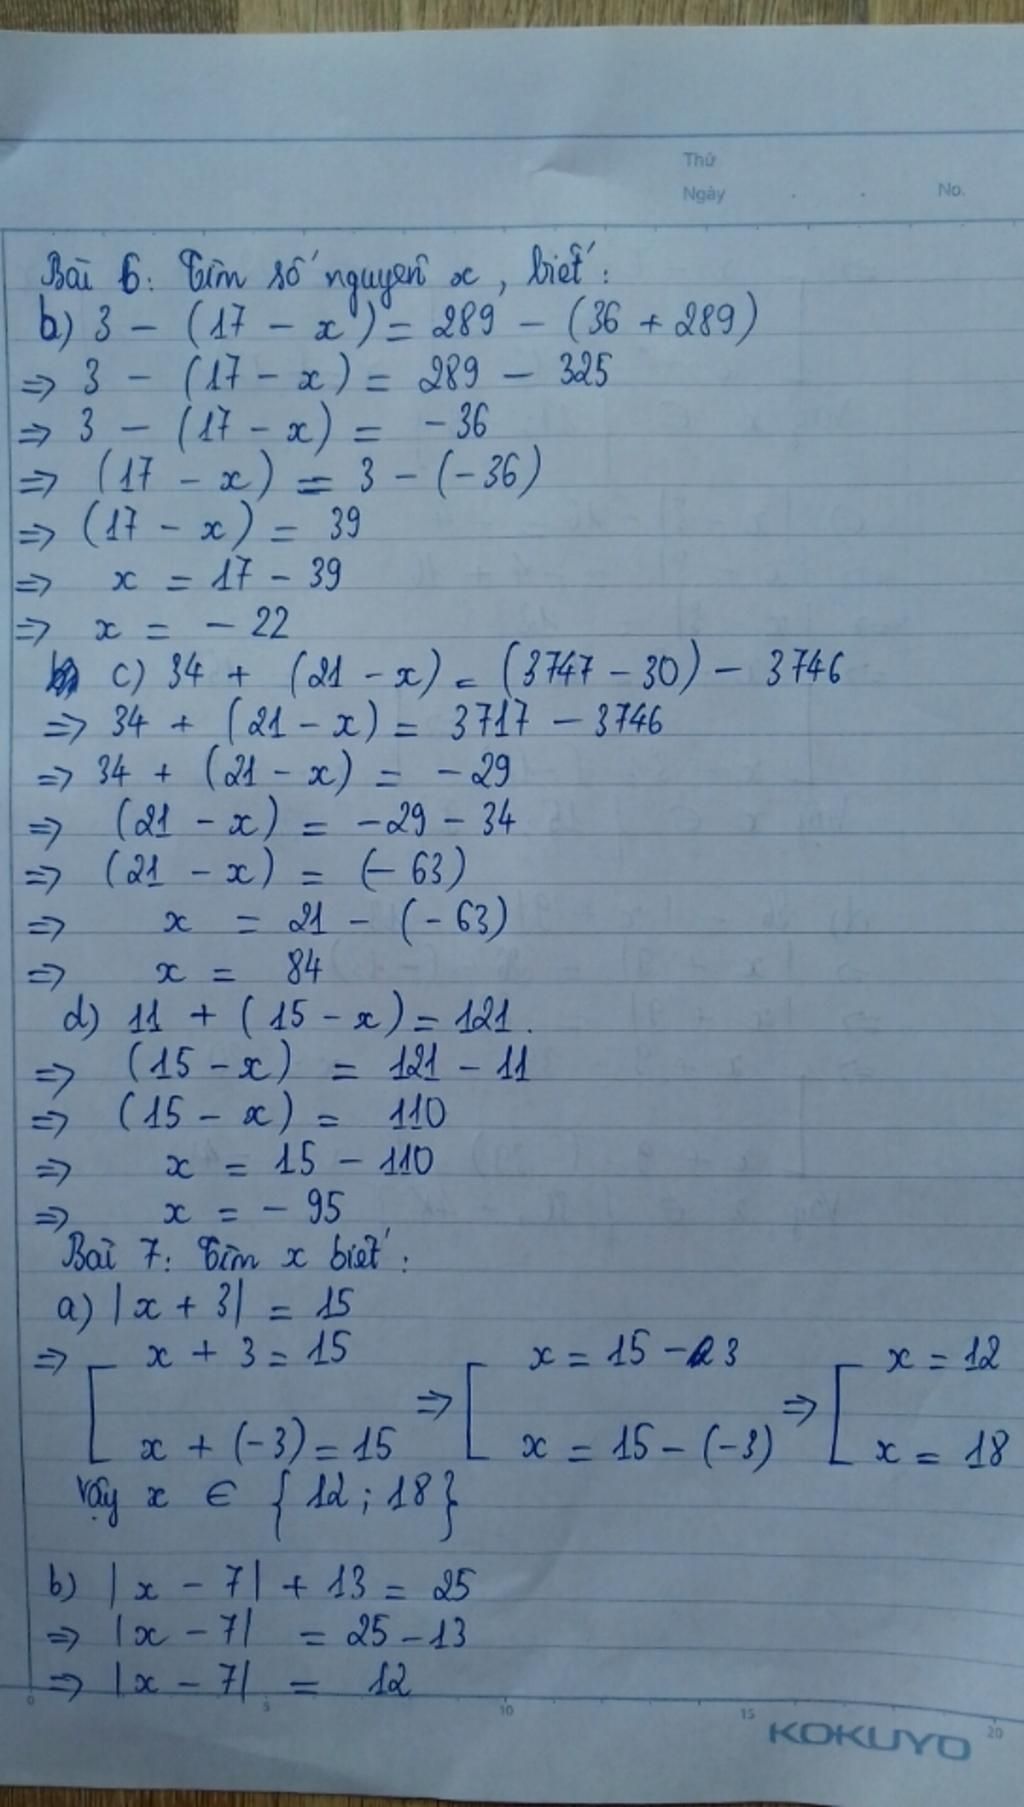 Thứ
Ngày . . No.
Bài 6: Tìm số nguyên x, biết:
b) 3 - (17 - x) = 289 - (36 + 289)
=> 3 - (17 - x) = 289 - 325
=> 3 - (17 - x) = -36
=> (17 - x) = 3 - (-36)
=> (17 - x) = 39
=> x = 17 - 39
=> x = - 22
c) 34 + (21 - x) = (3747 - 30) - 3746
=> 34 + (21 - x) = 3717 - 3746
=> 34 + (21 - x) = - 29
=> (21 - x) = -29 - 34
=> (21 - x) = (- 63)
=> x = 21 - (- 63)
=> x = 84
d) 11 + (15 - x) = 121.
=> (15 - x) = 121 - 11
=> (15 - x) = 110
=> x = 15 - 110
=> x = - 95
Bài 7: Tìm x biết:
a) |x + 3| = 15
=> [ x + 3 = 15 => [ x = 15 - 3 => [ x = 12
x + (-3) = 15 x = 15 - (-3) x = 18
Vậy x ∈ {12; 18}
b) |x - 7| + 13 = 25
=> |x - 7| = 25 - 13
=> |x - 7| = 12
0 5 10 15 20
KOKUYO